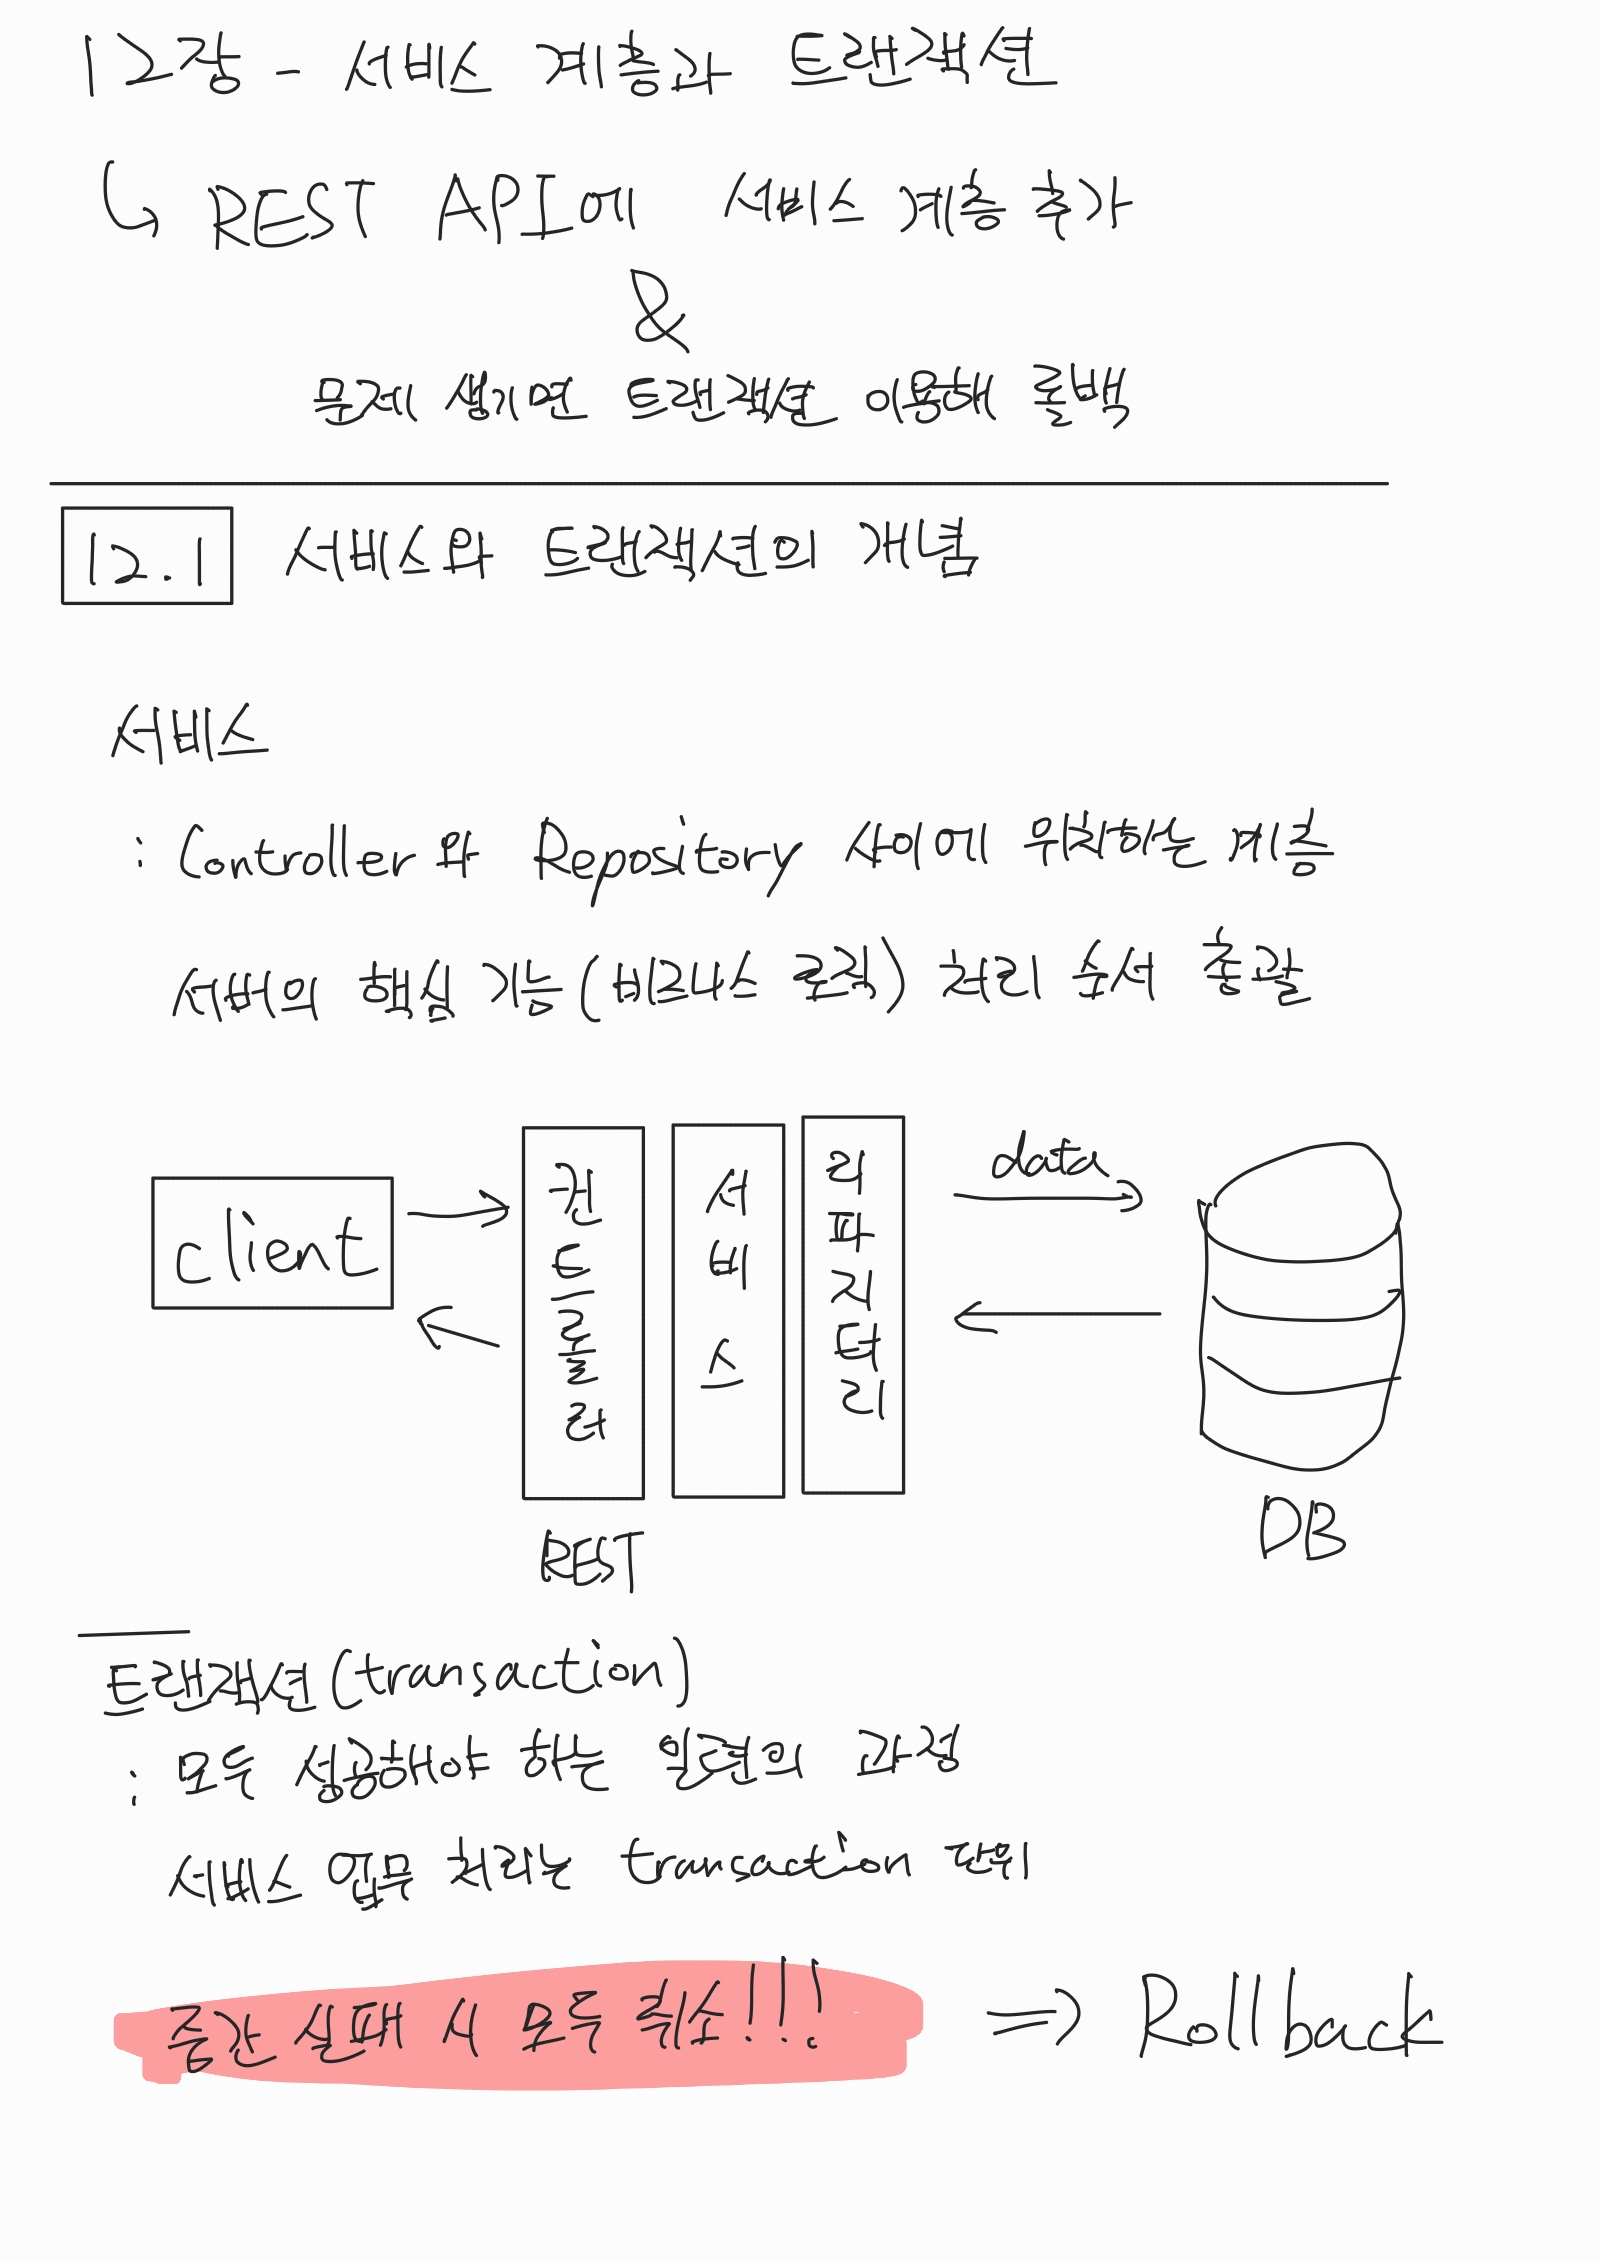 12장 - 서비스 계층과 트랜잭션
↳ REST API에 서비스 계층 추가
&
문제 생기면 트랜잭션 이용해 롤백
12.1 서비스와 트랜잭션의 개념
서비스
: Controller와 Repository 사이에 위치하는 계층
서버의 핵심 기능(비즈니스 로직) 처리 순서 총괄
client
컨트롤러
서비스
리파지터리
data
REST
DB
트랜잭션(transaction)
: 모두 성공해야 하는 일련의 과정
서비스 업무 처리는 transaction 단위
중간 실패 시 모두 취소!!! ⇒ Rollback